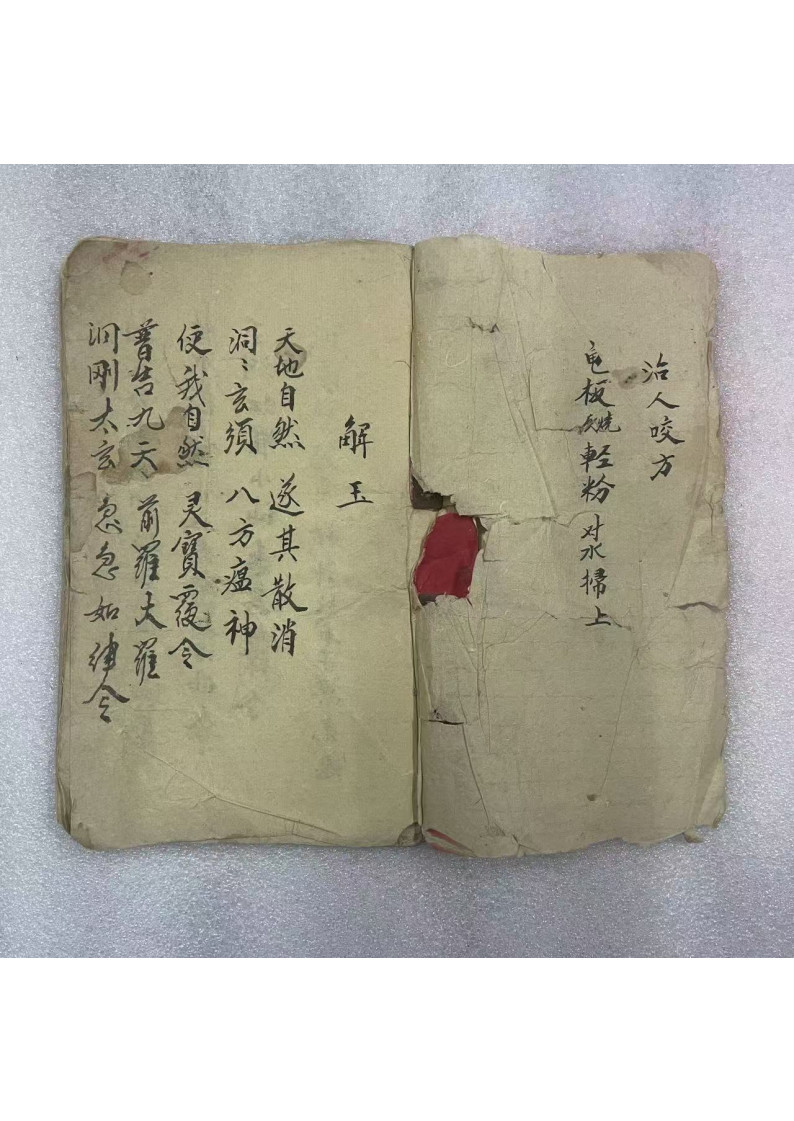 治人咬方
龟板烧灰輕粉对水掃上
解玉
天地自然 遂其散消
洞〻玄須 八方瘟神
使我自然 灵寶覆令
普告九天 前羅大羅
洞刚太玄 急急如律令